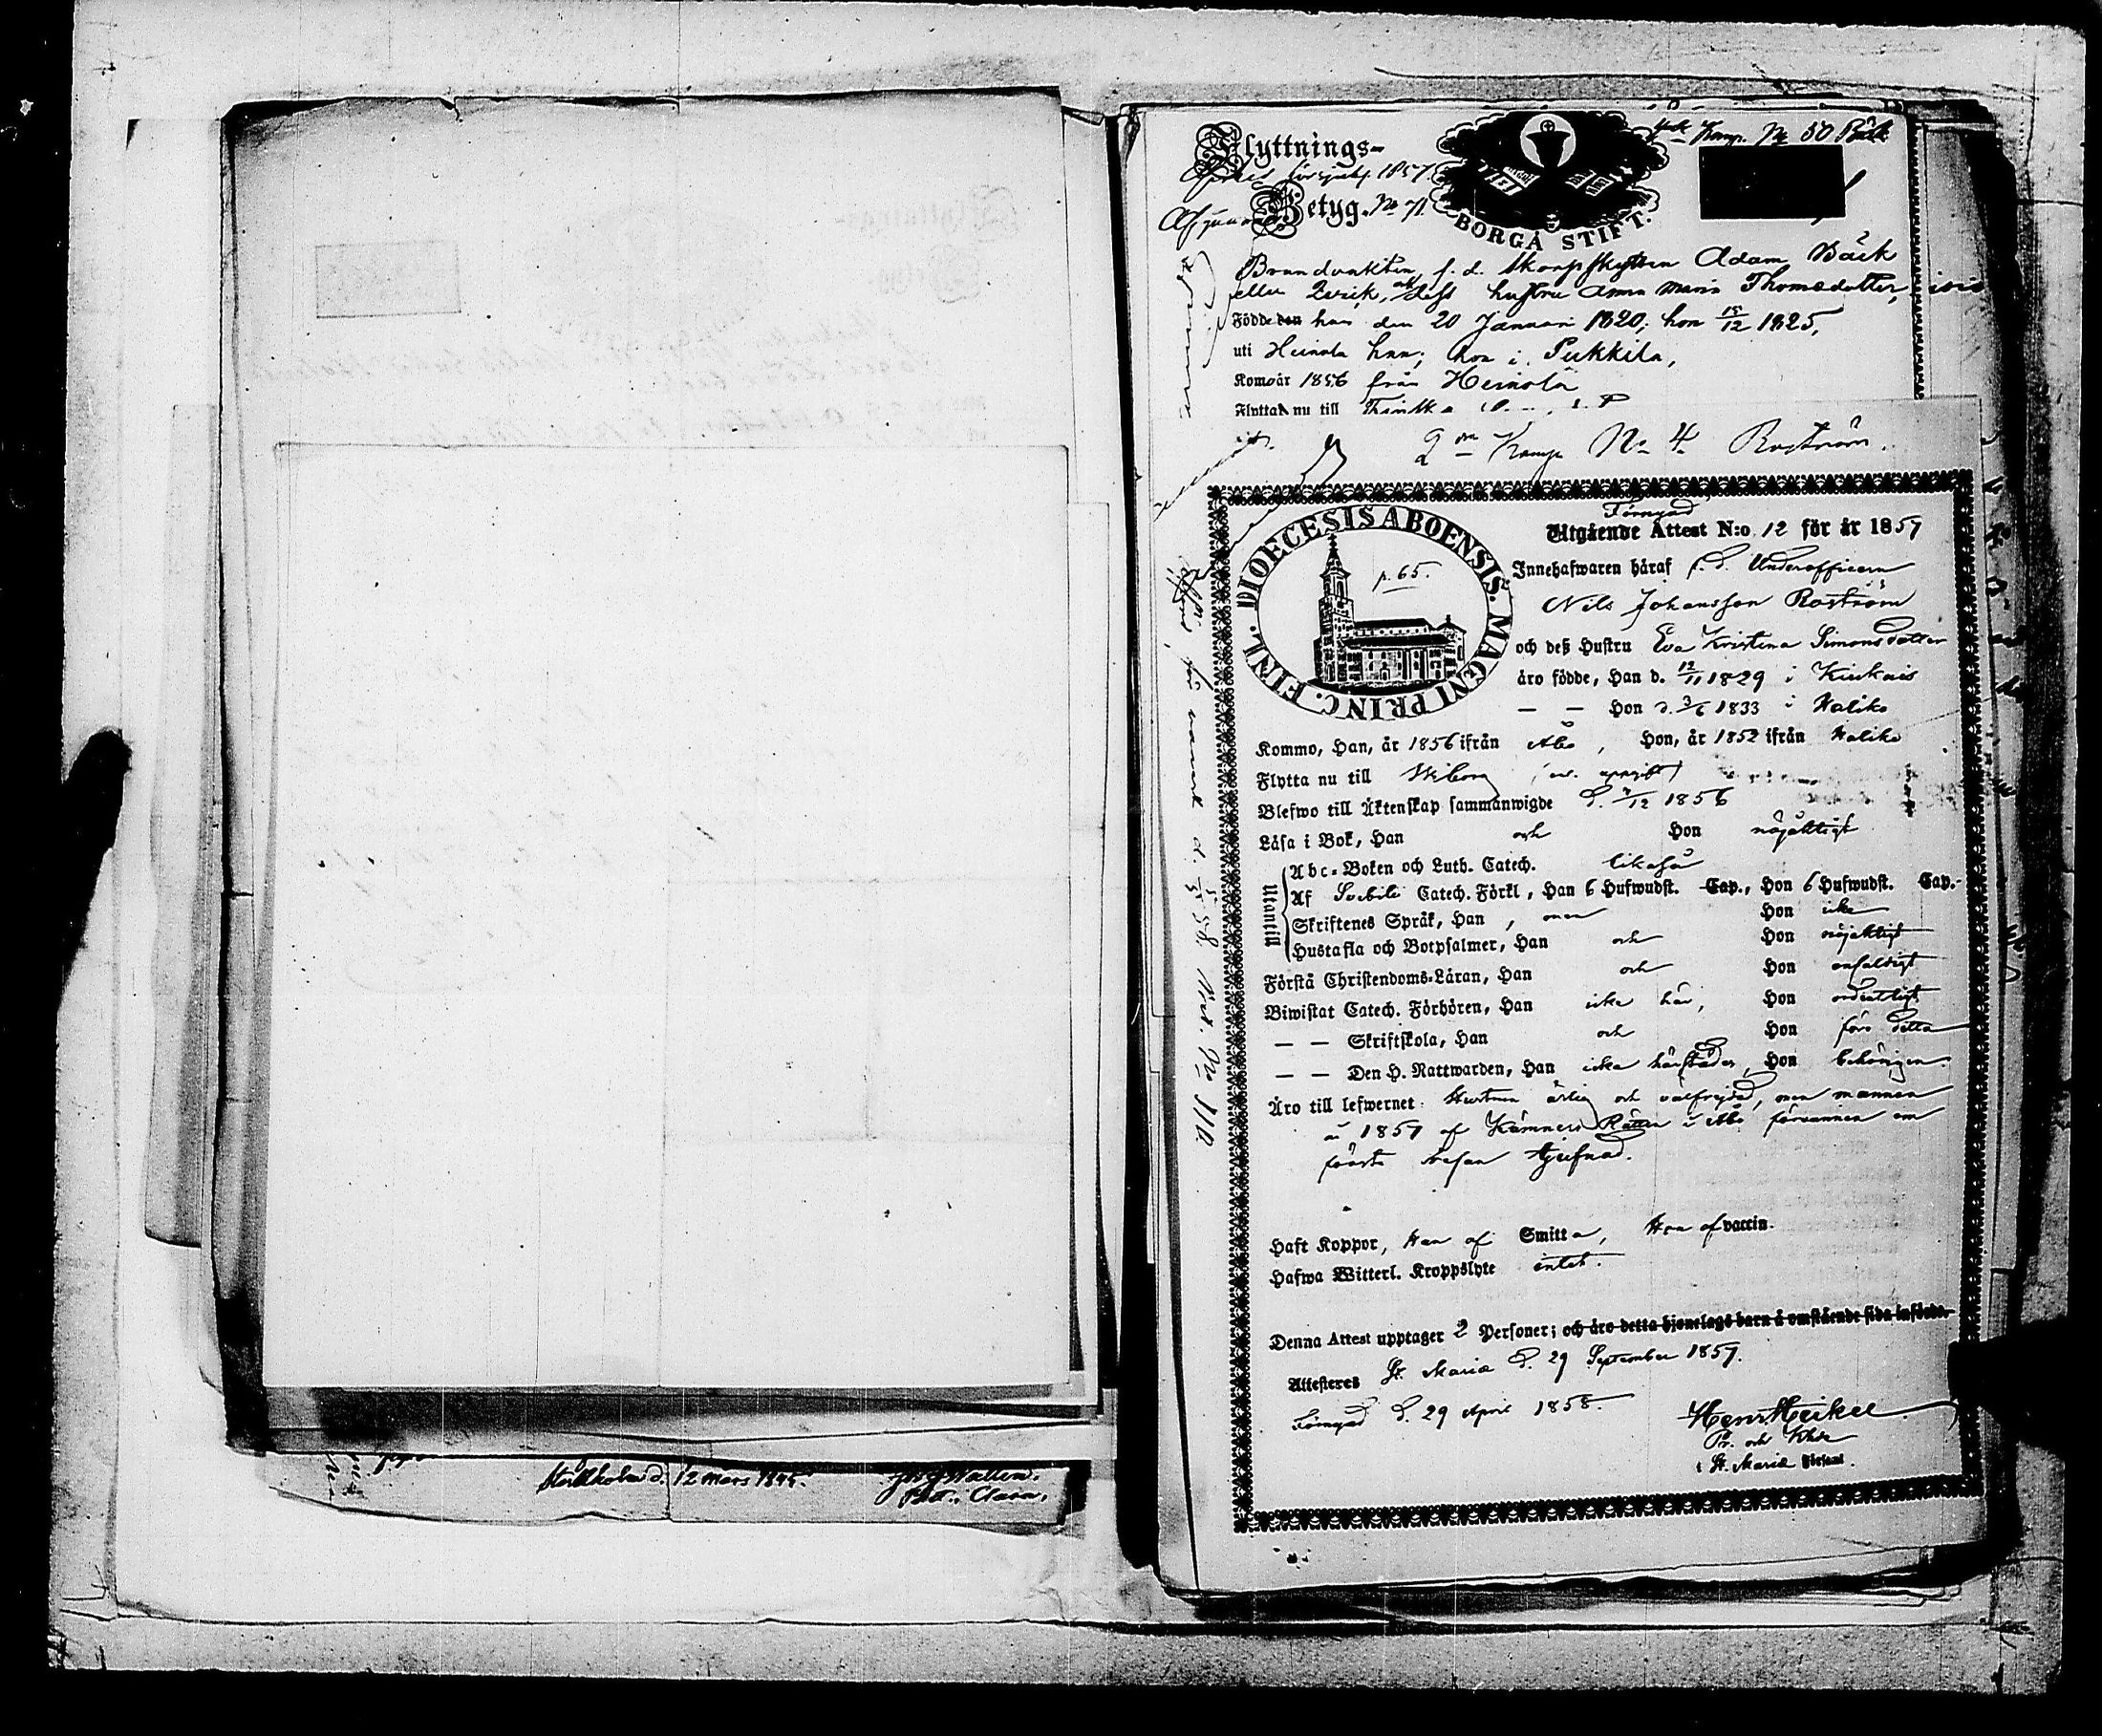 Stockholm d. 12 Mars 1845.
Clara,
Flyttnings-
1857.
Betyg. No 71.
BORGÅ STIFT.
Komp. No 50 Bäck
Brandvakten, f. d. Skarpskytten Adam Bäck
eller Zerick, och dess hustru Anna Maria Thomædotter,
Födde den han den 20 Januari 1820; hon 15/12 1825,
uti Heinola hon i Pukkila,
Komo år 1856 från Heinola
Flytta nu till
2 Komp No 4 Roström.
Förnyad
Utgående Attest N:o 12 för år 1857
DIOECESIS ABOENSIS. MAGNI PRINC. FINL.
p. 65.
Innehafwaren häraf f. d. Underofficern
Nils Johansson Roström
och deß Hustru Eva Kristina Simonsdotter
äro födde, Han d. 12/11 1829 i Kiukais
— — Hon d. 3/6 1833 i Haliko
Kommo, Han, år 1856 ifrån Åbo, Hon, år 1852 ifrån Haliko
Flytta nu till Wiborg (enl. uppgift)
Blefwo till Äktenskap sammanwigde d. 7/12 1856
Läsa i Bok, Han och Hon nöjaktigt
Utantill
Abc-Boken och Luth. Catech. likaså
Af Svebili Catech. Förkl, Han 6 Hufwudst. Cap., Hon 6 Hufwudst. Cap.
Skriftenes Språk, Han, men Hon icke
Hustafla och Botpsalmer, Han och Hon nöjaktigt
Förstå Christendoms-Läran, Han och Hon enfaldigt
Biwistat Catech. Förhören, Han icke här, Hon ordentligt
— — Skriftskola, Han och Hon före detta
— — Den H. Nattwarden, Han icke härstädes, Hon behörigen.
Äro till lefwernet Hustrun ärlig och välfrejdad, men mannen
år 1857 af Kämners Rätten i Åbo förvunnen om
första resan tjufnad.
Haft Koppor, Han af Smitta, Hon af vaccin.
Hafwa Witterl. Kroppslyte intet.
Denna Attest upptager 2 Personer; och äro detta hjonelags barn å omstående sida införde.
Attesteres St. Mariæ d. 29 September 1857.
Förnyad d. 29 April 1858.
Henr Heikel
Pr. och Khde
i St. Mariæ Församl.